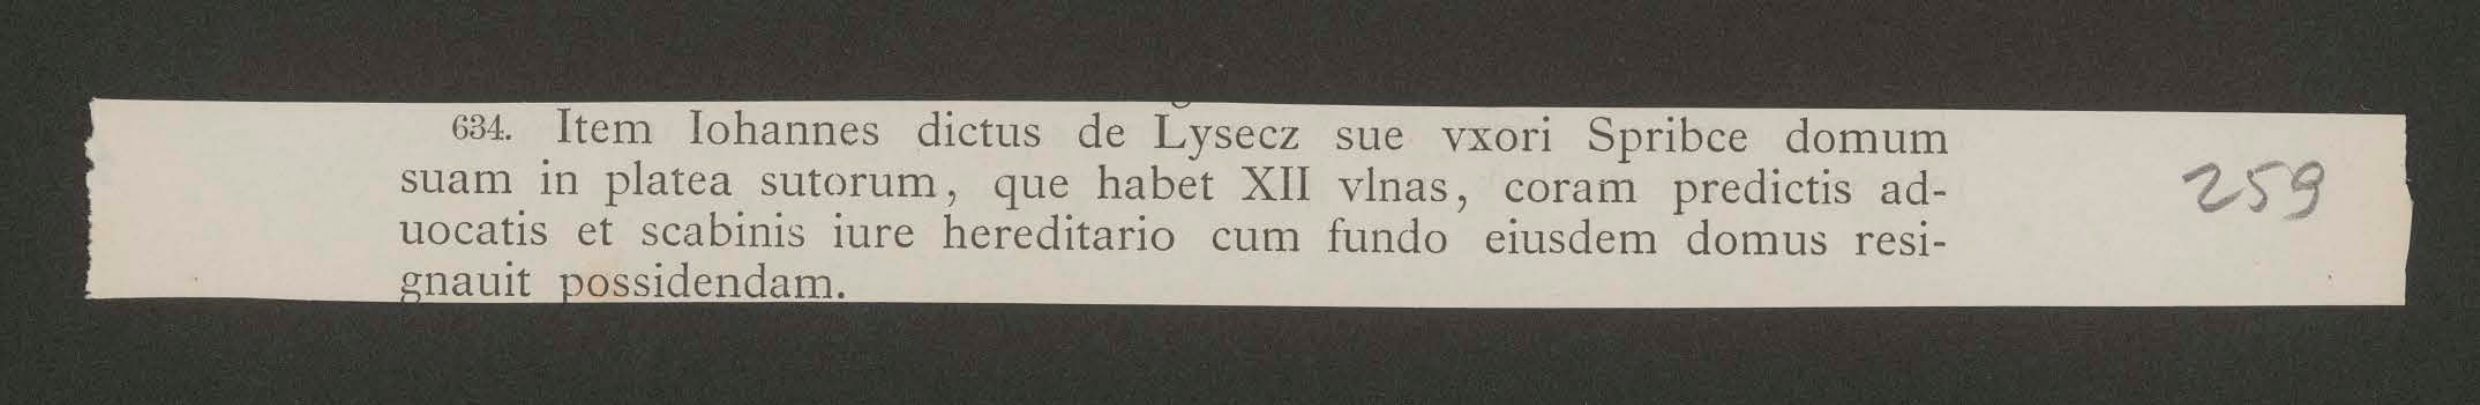 634. Item Iohannes dictus de Lysecz sue vxori Spribce domum
suam in platea sutorum, que habet XII vlnas, coram predictis ad-
uocatis et scabinis iure hereditario cum fundo eiusdem domus resi-
gnauit possidendam.
259